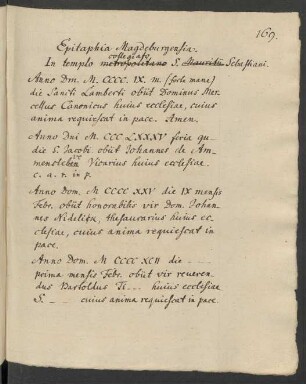 169.
Epitaphia Magdeburgensia.
collegiato
In templo metropolitano S. Mauritii Sebastiani.
Anno Dm. M. CCCC. IX. m (forte mane)
die Sancti Lamberti obiit Dominus Mar-
cellus Canonicus huius ecclesiae, cuius
anima requiescat in pace. Amen.
Anno Dni M. CCC LXXXV feria qu-
die S. Jacobi obiit Johannes de Am-
mensleben Vicarius huius ecclesiae.
c. a. r. in p.
Anno Dom. M CCCC XXV die IX mensis
Febr. obiit honorabilis vir Dom. Johan-
nes Nedelitz, thesaurarius huius ec-
clesiae, cuius anima requiescat in
pace.
Anno Dom. M CCCC XCII die - - -
prima mensis Febr. obiit vir reveren-
dus Bartoldus Ti- - - huius ecclesiae
S. - - - cuius anima requiescat in pace